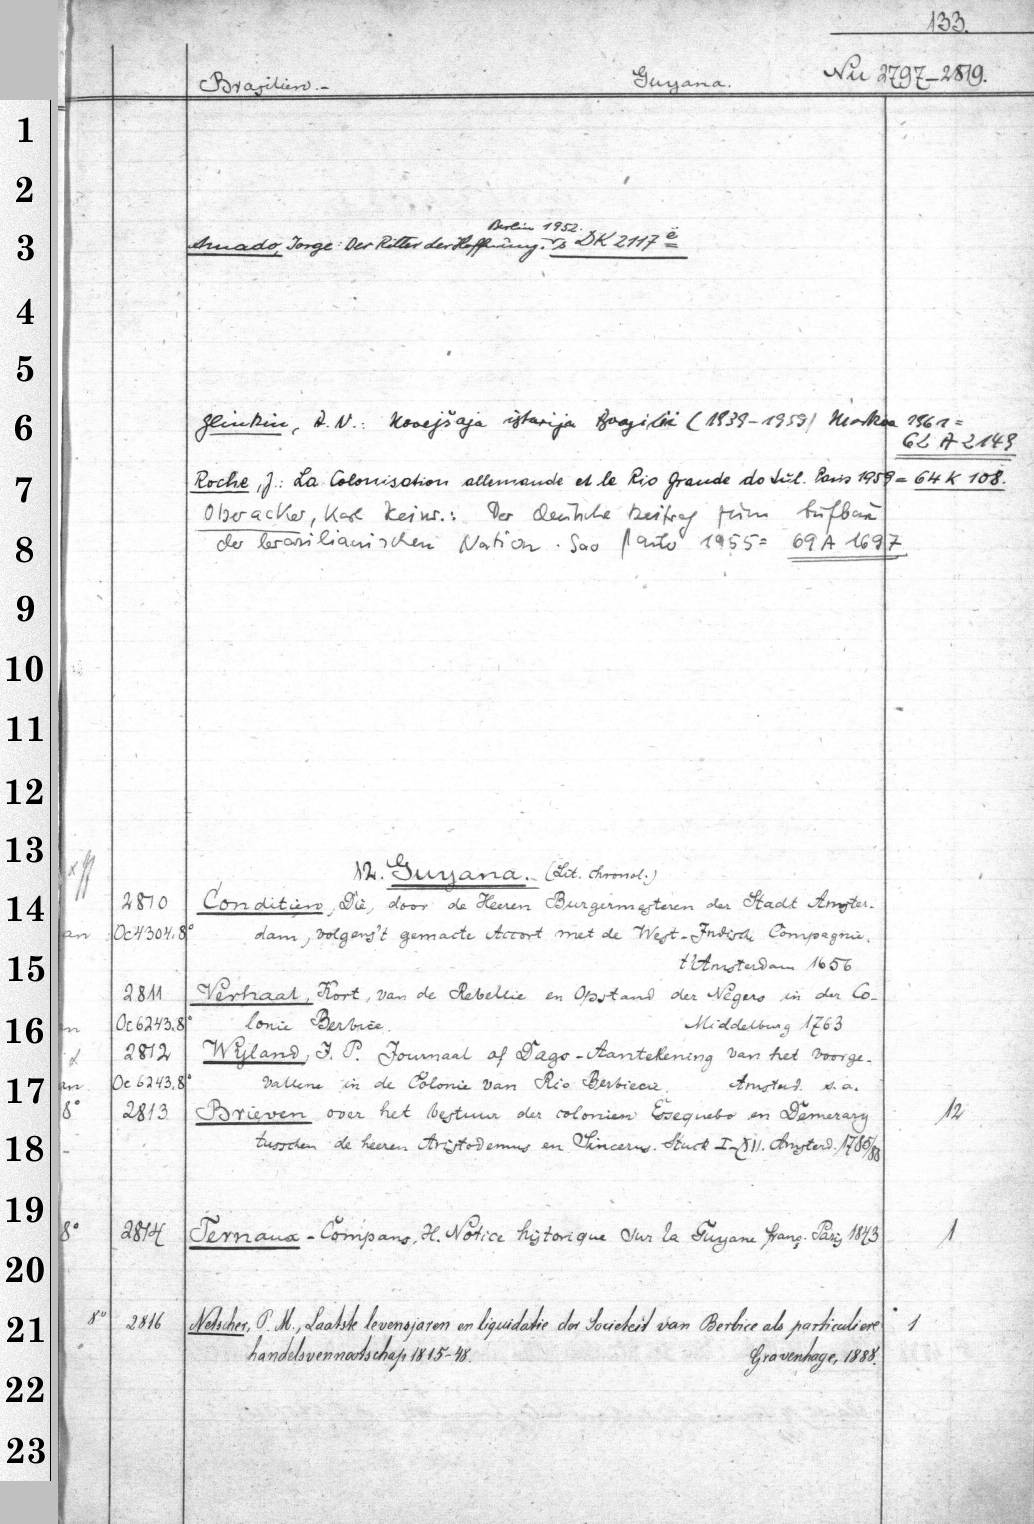 133.
Brasilien.- Guyana. Nu 2797-2819.
1
2
Berlin 1952.
3 Amado, Jorge: Der Ritter der Hoffnung. DK 2117 ë
4
5
6 Glinkin, A. N.: Novejšaja istorija Brazilii (1939-1959) Moskva 1961 =
62 A 2149
7 Roche, J.: La Colonisation allemande et le Rio Grande do Sul. Paris 1959 = 64 K 108.
Oberacker, Karl Heinr.: Der deutsche Beitrag zum Aufbau
8 der brasilianischen Nation. Sao Paulo 1955 = 69 A 1697
9
10
11
12
13
12. Guyana. (Lit. chronol.)
14 2810 Conditien, Die, door de Heeren Burgermesteren der Stadt Amster-
an Oc 4304.8° dam, volgens't gemacte Accort met de West-Indische Compagnie.
15 t'Amsterdam 1656
2811 Verhaal, Kort, van de Rebellie en Opstand der Negers in der Co-
16 Oc 6243.8° lonie Berbice. Middelburg 1763
2812 Wyland, J. P. Journaal of Dago-Aantekening van het voorge-
17 an Oc 6243.8° vallene in de Colonie van Rio Berbiece. Amsterd. s.a.
8° 2813 Brieven over het bestuur der colonien Essequebo en Demerary 12
18 tusschen de heeren Aristodemus en Sincerus. Stuck I-XII. Amsterd. 1785/88
19 8° 2814 Ternaux-Compans, H. Notice historique sur la Guyane franç. Paris 1843 1
20
21 8° 2816 Netscher, P. M., Laatste levensjaren en liquidatie der Societeit van Berbice als particuliere 1
handelsvennootschap 1815-48. Gravenhage, 1888.
22
23